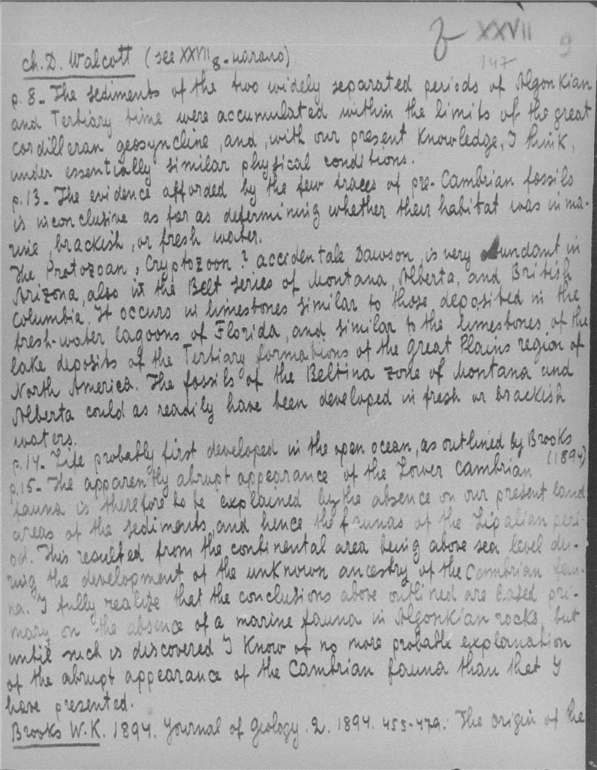 XXVII
147 9
Ch. D. Walcott (see XXVII 8 - начало)
p. 8 - The sediments of the two widely separated periods of Algonkian
and Tertiary time were accumulated within the limits of the great
cordilleran geosyncline, and, with our present knowledge, I think,
under essentially similar physical conditions.
p. 13 - The evidence afforded by the few traces of pre-Cambrian fossils
is inconclusive as far as determining whether their habitat was in ma-
rine, brackish, or fresh water.
The Protozoan, Cryptozoon? accidentale Dawson, is very abundant in
Arizona, also in the Belt series of Montana, Alberta, and British
Columbia. It occurs in limestones similar to those deposited in the
fresh-water lagoons of Florida, and similar to the limestones of the
lake deposits of the Tertiary formations of the Great Plains region of
North America. The fossils of the Beltina zone of Montana and
Alberta could as readily have been developed in fresh or brackish
waters.
p. 14 - Life probably first developed in the open ocean, as outlined by Brooks
(1894)
p. 15 - The apparently abrupt appearance of the Lower Cambrian
fauna is therefore to be explained by the absence on our present land
areas of the sediments, and hence the faunas of the Lipalian peri-
od. This resulted from the continental area being above sea level du-
ring the development of the unknown ancestry of the Cambrian fau-
na. I fully realize that the conclusions above outlined are based pri-
mary on the absence of a marine fauna in Algonkian rocks, but
until such is discovered I know of no more probable explanation
of the abrupt appearance of the Cambrian fauna than that I
have presented.
Brooks W. K. 1894. Journal of Geology. 2. 1894. 455-479. The origin of the